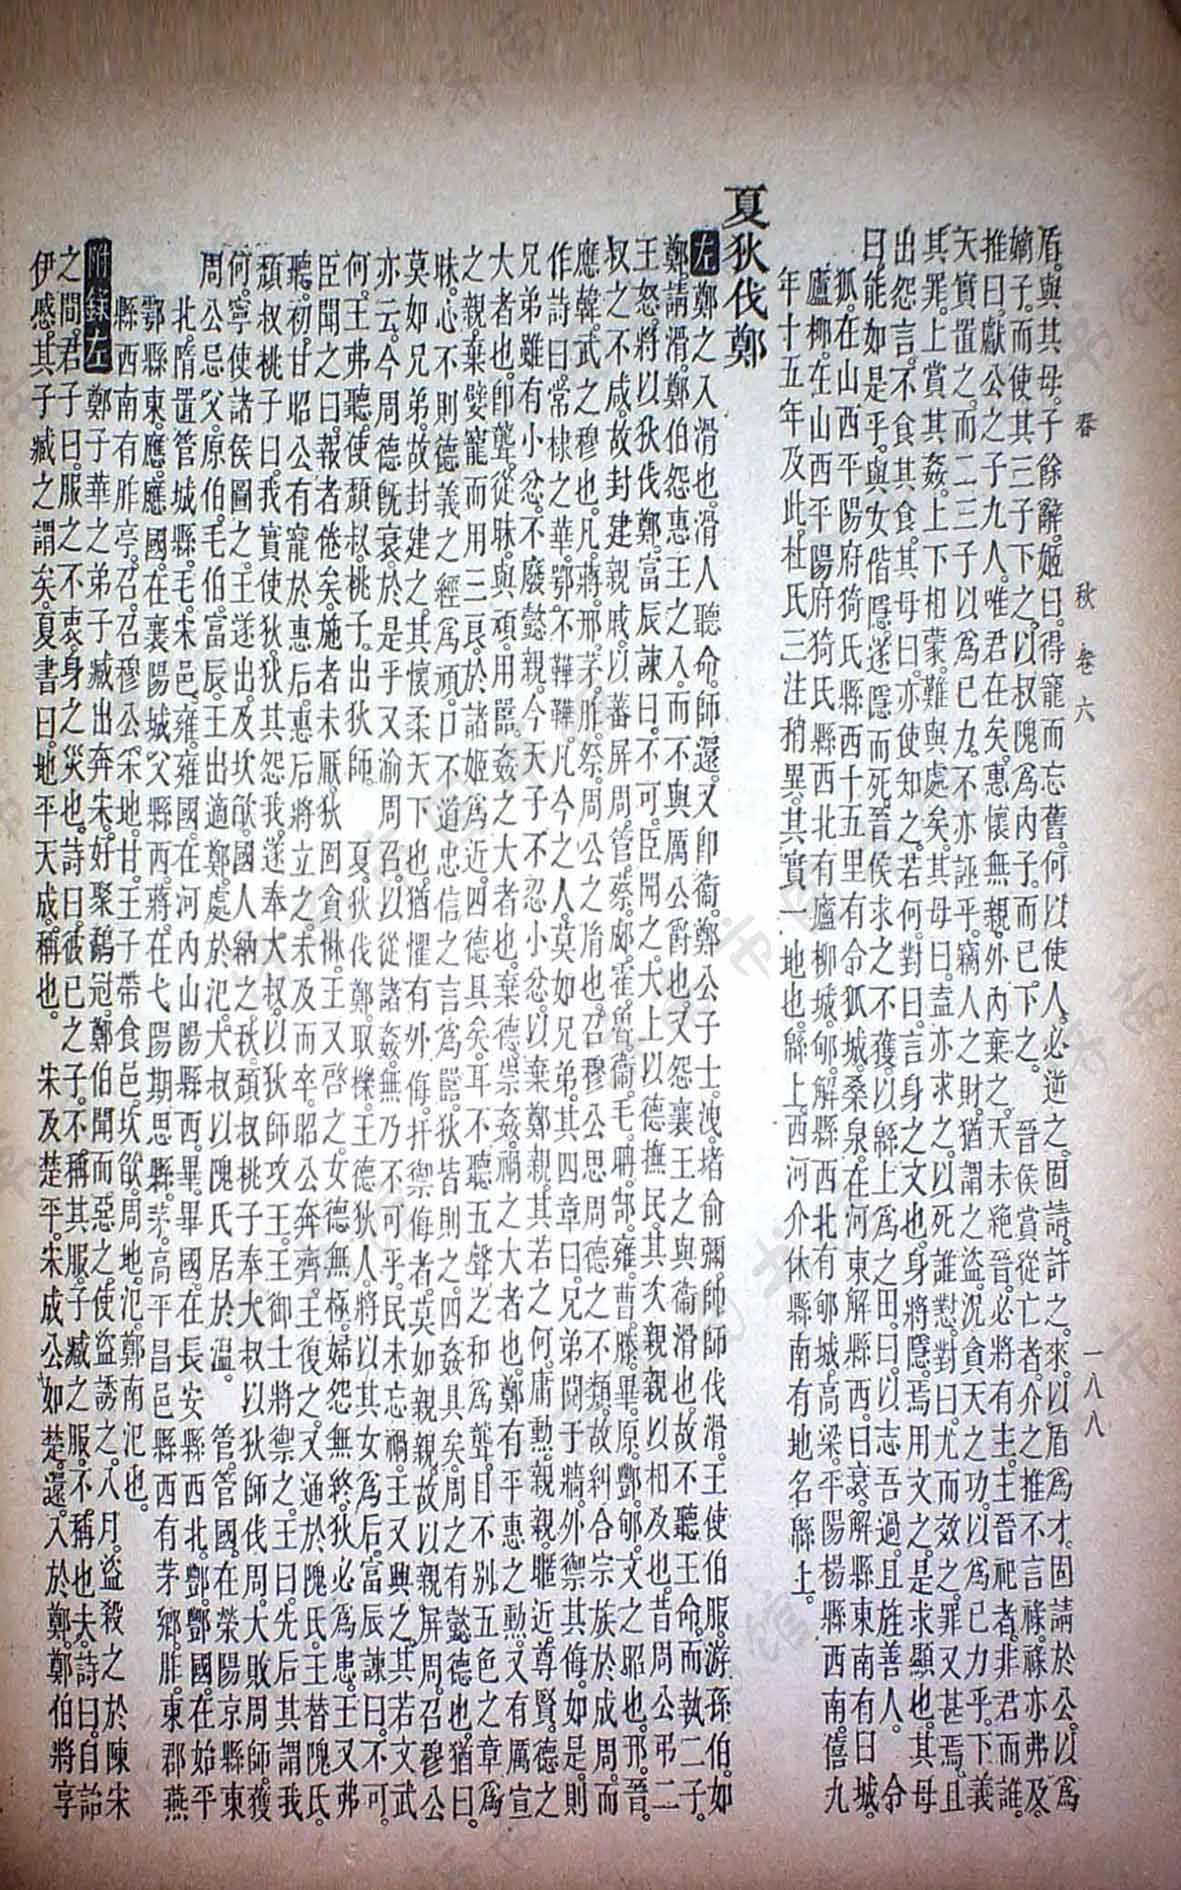 春　秋　卷六　一八八
盾與其母子餘辭姬曰得寵而忘舊何以使人必逆之固請許之來以盾爲才固請於公以爲
嫡子而使其三子下之以叔隗爲內子而己下之　晉侯賞從亡者介之推不言祿祿亦弗及
推曰獻公之子九人唯君在矣惠懷無親外內棄之天未絕晉必將有主主晉祀者非君而誰
天實置之而二三子以爲己力不亦誣乎竊人之財猶謂之盜況貪天之功以爲己力乎下義
其罪上賞其姦上下相蒙難與處矣其母曰盍亦求之以死誰懟對曰尤而效之罪又甚焉且
出怨言不食其食其母曰亦使知之若何對曰言身之文也身將隱焉用文之是求顯也其母
曰能如是乎與女偕隱遂隱而死晉侯求之不獲以緜上爲之田曰以志吾過且旌善人　令
狐在山西平陽府猗氏縣西十五里有令狐城桑泉在河東解縣西臼衰解縣東南有臼城
廬柳在山西平陽府猗氏縣西北有廬柳城郇解縣西北有郇城高梁平陽楊縣西南僖九
年十五年及此杜氏三注稍異其實一地也緜上西河介休縣南有地名緜上
夏狄伐鄭
左鄭之入滑也滑人聽命師還又卽衞鄭公子士洩堵俞彌帥師伐滑王使伯服游孫伯如
鄭請滑鄭伯怨惠王之入而不與厲公爵也又怨襄王之與衞滑也故不聽王命而執二子
王怒將以狄伐鄭富辰諫曰不可臣聞之大上以德撫民其次親親以相及也昔周公弔二
叔之不咸故封建親戚以蕃屏周管蔡郕霍魯衞毛聃郜雍曹滕畢原酆郇文之昭也邘晉
應韓武之穆也凡蔣邢茅胙祭周公之胤也召穆公思周德之不類故糾合宗族於成周而
作詩曰常棣之華鄂不韡韡凡今之人莫如兄弟其四章曰兄弟鬩于牆外禦其侮如是則
兄弟雖有小忿不廢懿親今天子不忍小忿以棄鄭親其若之何庸勳親親暱近尊賢德之
大者也卽聾從昧與頑用嚚姦之大者也棄德崇姦禍之大者也鄭有平惠之勳又有厲宣
之親棄嬖寵而用三良於諸姬爲近四德具矣耳不聽五聲之和爲聾目不別五色之章爲
昧心不則德義之經爲頑口不道忠信之言爲嚚狄皆則之四姦具矣周之有懿德也猶曰
莫如兄弟故封建之其懷柔天下也猶懼有外侮扞禦侮者莫如親親故以親屏周召穆公
亦云今周德旣衰於是乎又渝周召以從諸姦無乃不可乎民未忘禍王又興之其若文武
何王弗聽使頹叔桃子出狄師　夏狄伐鄭取櫟王德狄人將以其女爲后富辰諫曰不可
臣聞之曰報者倦矣施者未厭狄固貪惏王又啓之女德無極婦怨無終狄必爲患王又弗
聽初甘昭公有寵於惠后惠后將立之未及而卒昭公奔齊王復之又通於隗氏王替隗氏
頹叔桃子曰我實使狄狄其怨我遂奉大叔以狄師攻王王御士將禦之王曰先后其謂我
何寧使諸侯圖之王遂出及坎欿國人納之秋頹叔桃子奉大叔以狄師伐周大敗周師獲
周公忌父原伯毛伯富辰王出適鄭處於氾大叔以隗氏居於溫　管管國在滎陽京縣東
北隋置管城縣毛宋邑雍雍國在河內山陽縣西畢畢國在長安縣西北酆酆國在始平
鄠縣東應應國在襄陽城父縣西蔣在弋陽期思縣茅高平昌邑縣西有茅鄉胙東郡燕
縣西南有胙亭召召穆公采地甘王子帶食邑坎欿周地氾鄭南氾也
附錄左鄭子華之弟子臧出奔宋好聚鷸冠鄭伯聞而惡之使盜誘之八月盜殺之於陳宋
之間君子曰服之不衷身之災也詩曰彼己之子不稱其服子臧之服不稱也夫詩曰自詒
伊慼其子臧之謂矣夏書曰地平天成稱也　宋及楚平宋成公如楚還入於鄭鄭伯將享